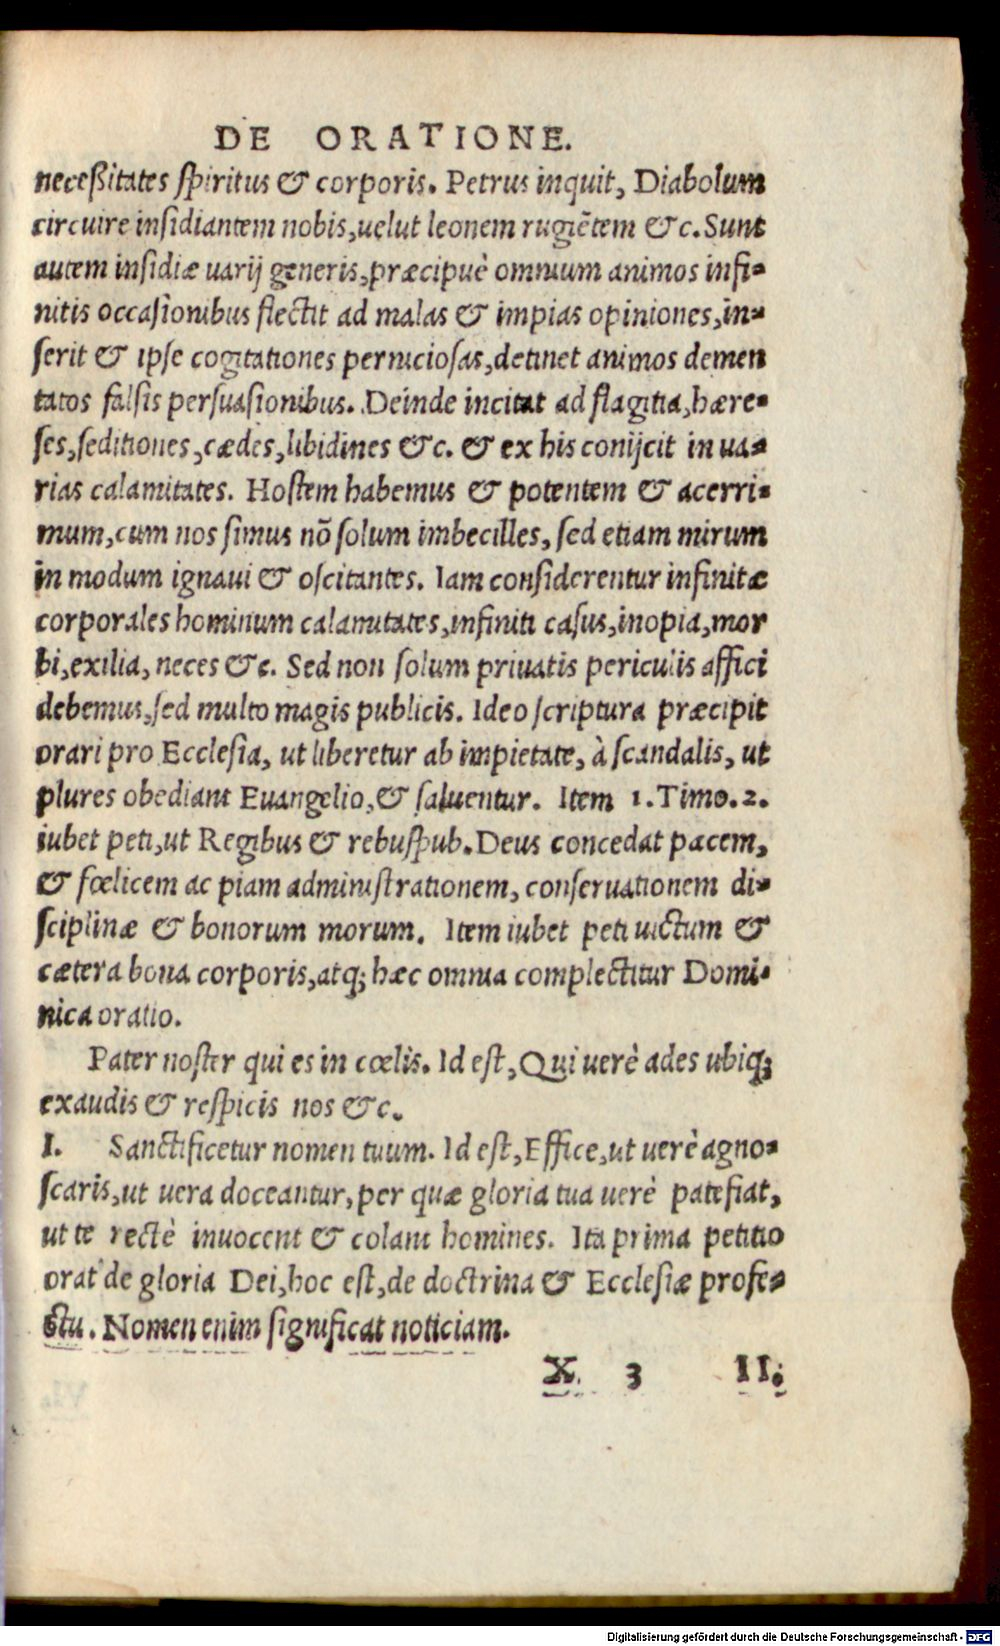 DE ORATIONE.
neceßitates ſpiritus & corporis. Petrus inquit, Diabolum
circuire inſidiantem nobis, uelut leonem rugiẽtem &c. Sunt
autem inſidiæ uarij generis, præcipuè omnium animos infi-
nitis occaſionibus flectit ad malas & impias opiniones, in-
ſerit & ipſe cogitationes pernicioſas, detinet animos demen
tatos falſis perſuaſionibus. Deinde incitat ad flagitia, hære-
ſes, ſeditiones, cædes, libidines &c. & ex his conijcit in ua-
rias calamitates. Hoſtem habemus & potentem & acerri-
mum, cum nos ſimus nõ ſolum imbecilles, ſed etiam mirum
in modum ignaui & oſcitantes. Iam conſiderentur infinitæ
corporales hominum calamitates, infiniti caſus, inopia, mor
bi, exilia, neces &c. Sed non ſolum priuatis periculis affici
debemus, ſed multo magis publicis. Ideo ſcriptura præcipit
orari pro Eccleſia, ut liberetur ab impietate, à ſcandalis, ut
plures obediant Euangelio, & ſaluentur. Item 1. Timo. 2.
iubet peti, ut Regibus & rebuſpub. Deus concedat pacem,
& fœlicem ac piam adminiſtrationem, conſeruationem di-
ſciplinæ & bonorum morum. Item iubet peti uictum &
cætera bona corporis, atq; hæc omnia complectitur Domi-
nica oratio.
Pater noſter qui es in cœlis. Id eſt, Qui uerè ades ubiq;
exaudis & reſpicis nos &c.
I. Sanctificetur nomen tuum. Id eſt, Effice, ut uerè agno-
ſcaris, ut uera doceantur, per quæ gloria tua uerè patefiat,
ut te rectè inuocent & colant homines. Ita prima petitio
orat de gloria Dei, hoc eſt, de doctrina & Eccleſiæ profe-
ctu. Nomen enim ſignificat noticiam.
X 3 II.
Digitalisierung gefördert durch die Deutsche Forschungsgemeinschaft - DFG